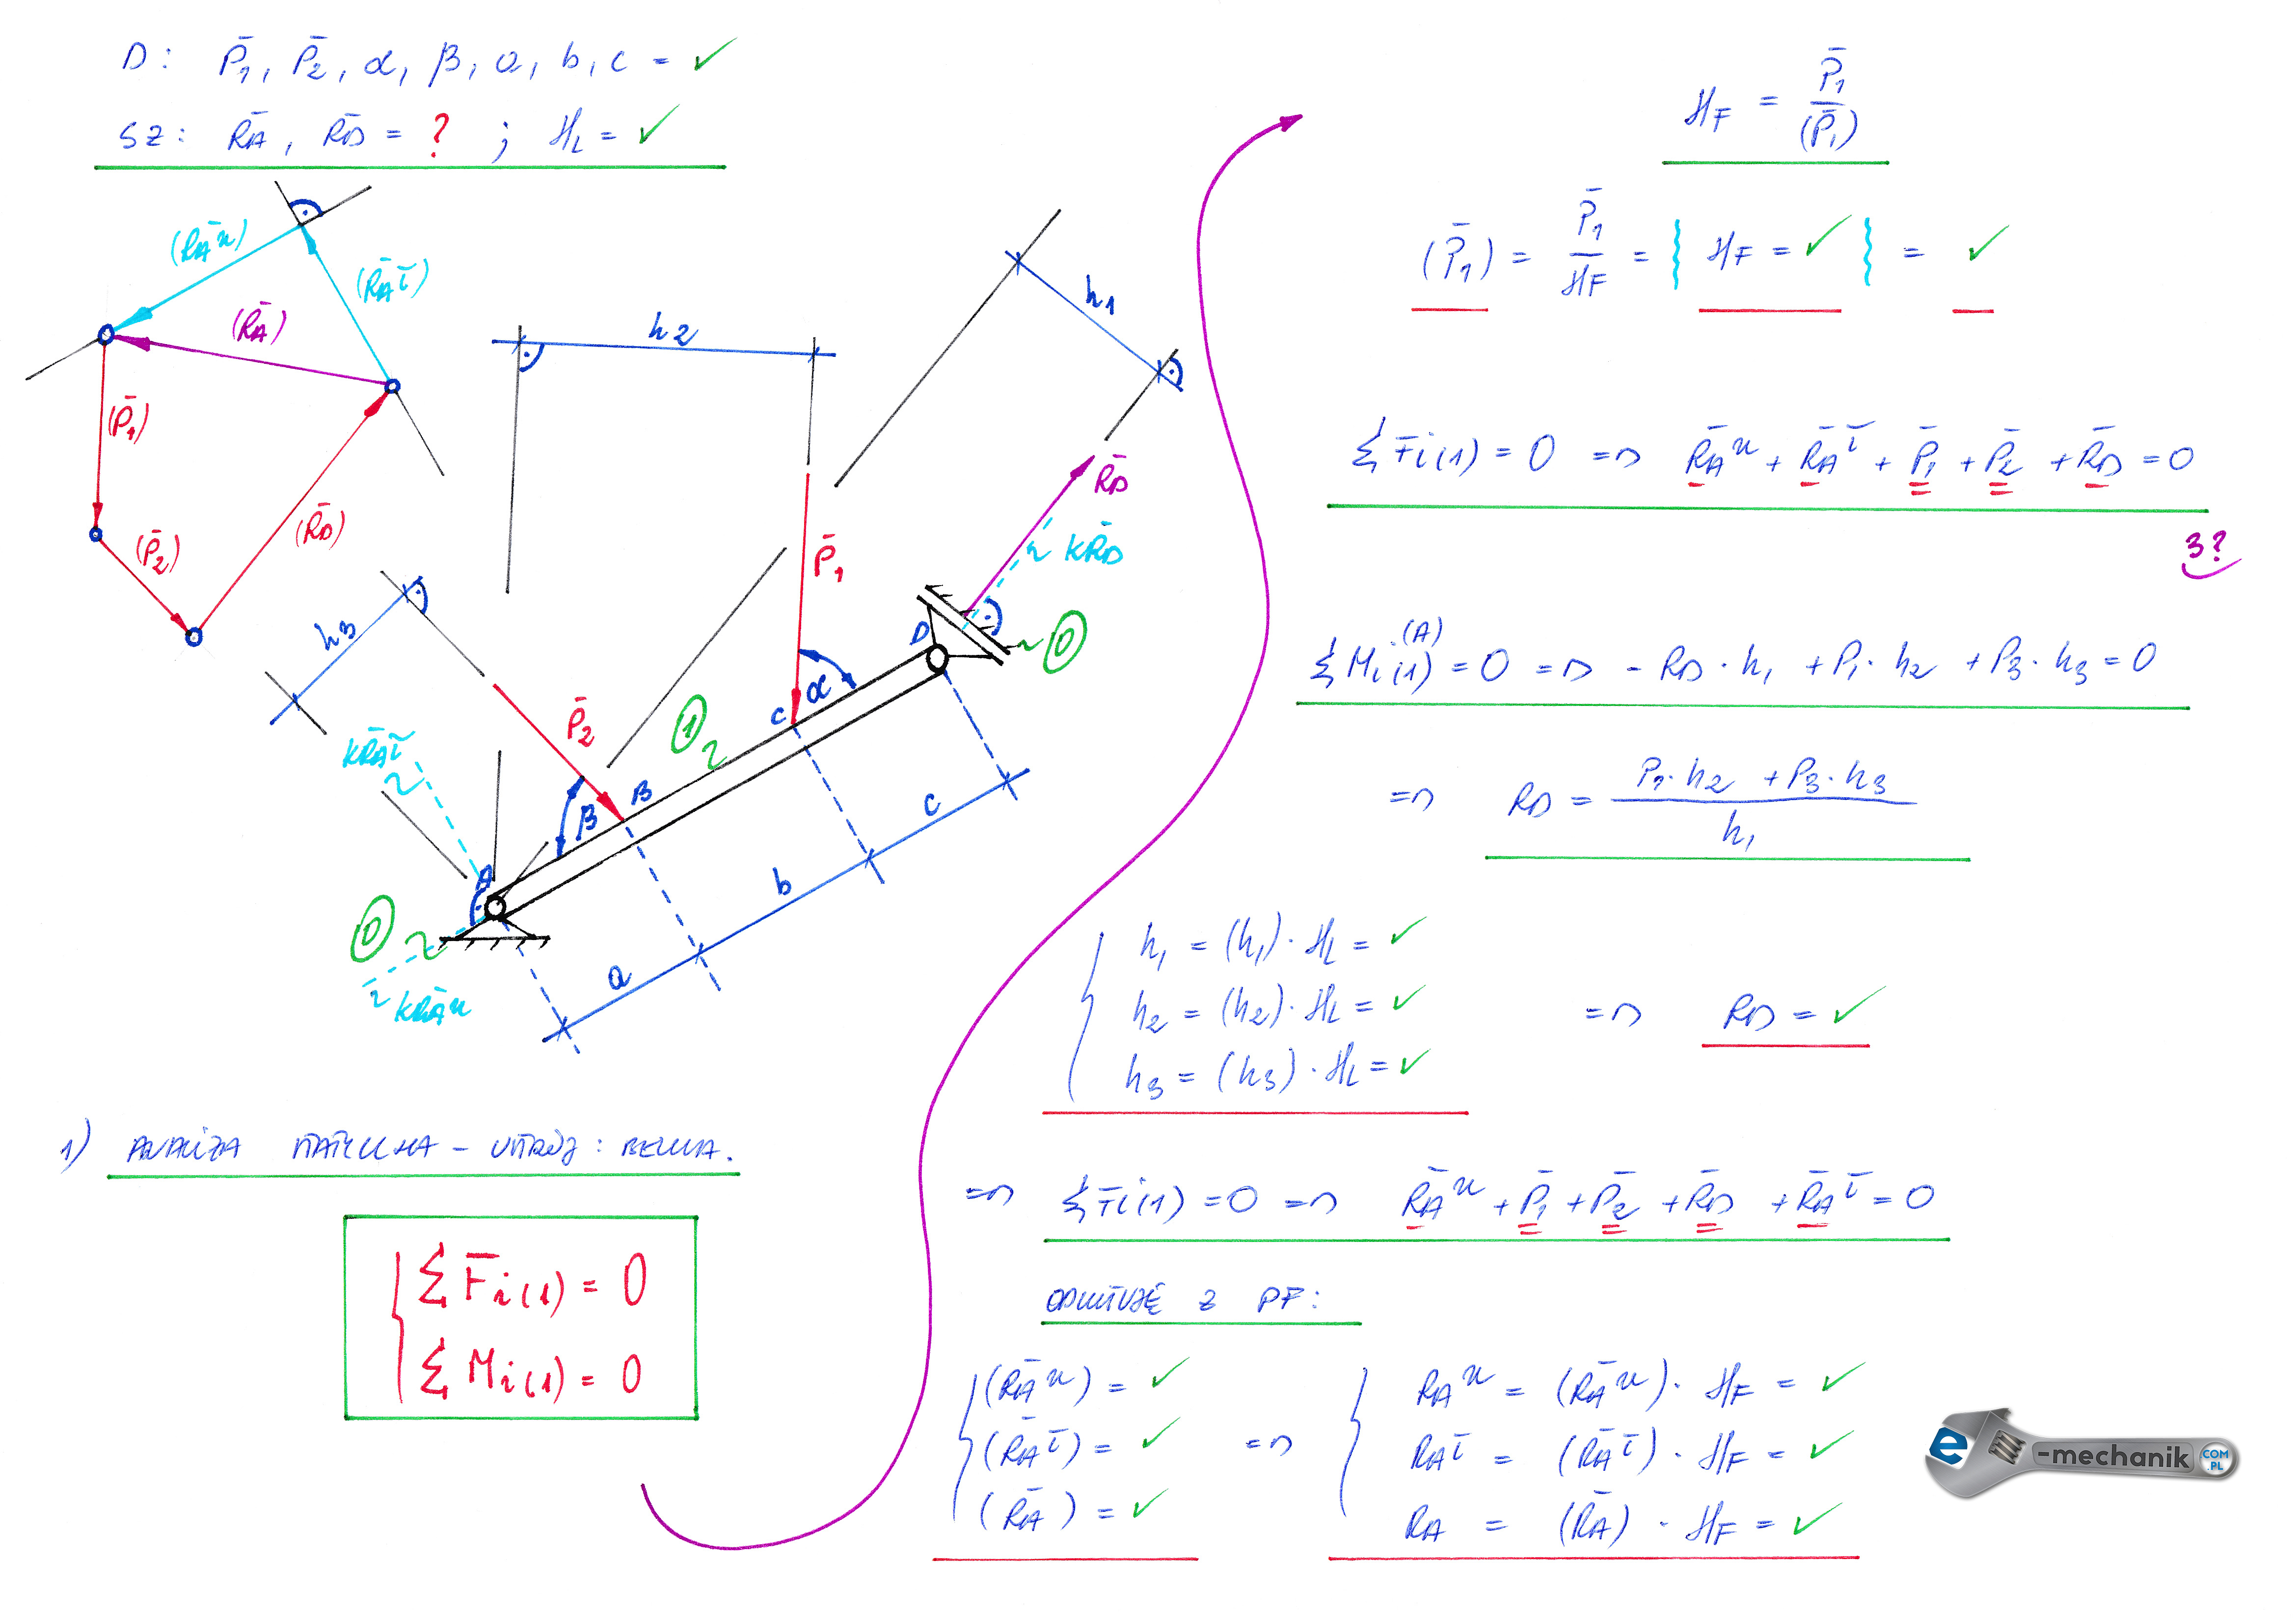 D: P̄₁, P̄₂, α, β, a, b, c = ✓
SZ: R̄A, R̄D = ? ; ϰL = ✓
(R̄Aⁿ)
(R̄Aᵗ)
(R̄A)
(P̄₁)
(P̄₂)
(R̄D)
h2
h1
h3
R̄D
~ KR̄D
P̄₁
P̄₂
KR̄Aᵗ
KR̄Aⁿ
A
B
C
D
α
β
1
0
0
a
b
c
1) ANALIZA STATYCZNA - USTRÓJ: BELKA.
Σ F̄i(1) = 0
Σ Mi(1) = 0
ϰF = P̄₁ / (P̄₁)
(P̄₁) = P̄₁ / ϰF = { ϰF = ✓ } = ✓
Σ F̄i(1) = 0 => R̄Aⁿ + R̄Aᵗ + P̄₁ + P̄₂ + R̄D = 0
3?
Σ Mi(1)^(A) = 0 => - RD · h₁ + P₁ · h₂ + P₃ · h₃ = 0
=> RD = (P₁ · h₂ + P₃ · h₃) / h₁
h₁ = (h₁) · ϰL = ✓
h₂ = (h₂) · ϰL = ✓
h₃ = (h₃) · ϰL = ✓
=> RD = ✓
=> Σ F̄i(1) = 0 => R̄Aⁿ + P̄₁ + P̄₂ + R̄D + R̄Aᵗ = 0
ODCZYTUJĘ Z PF:
(R̄Aⁿ) = ✓
(R̄Aᵗ) = ✓
(R̄A) = ✓
=>
RAⁿ = (R̄Aⁿ) · ϰF = ✓
RAᵗ = (R̄Aᵗ) · ϰF = ✓
RA = (R̄A) · ϰF = ✓
e-mechanik.COM.PL